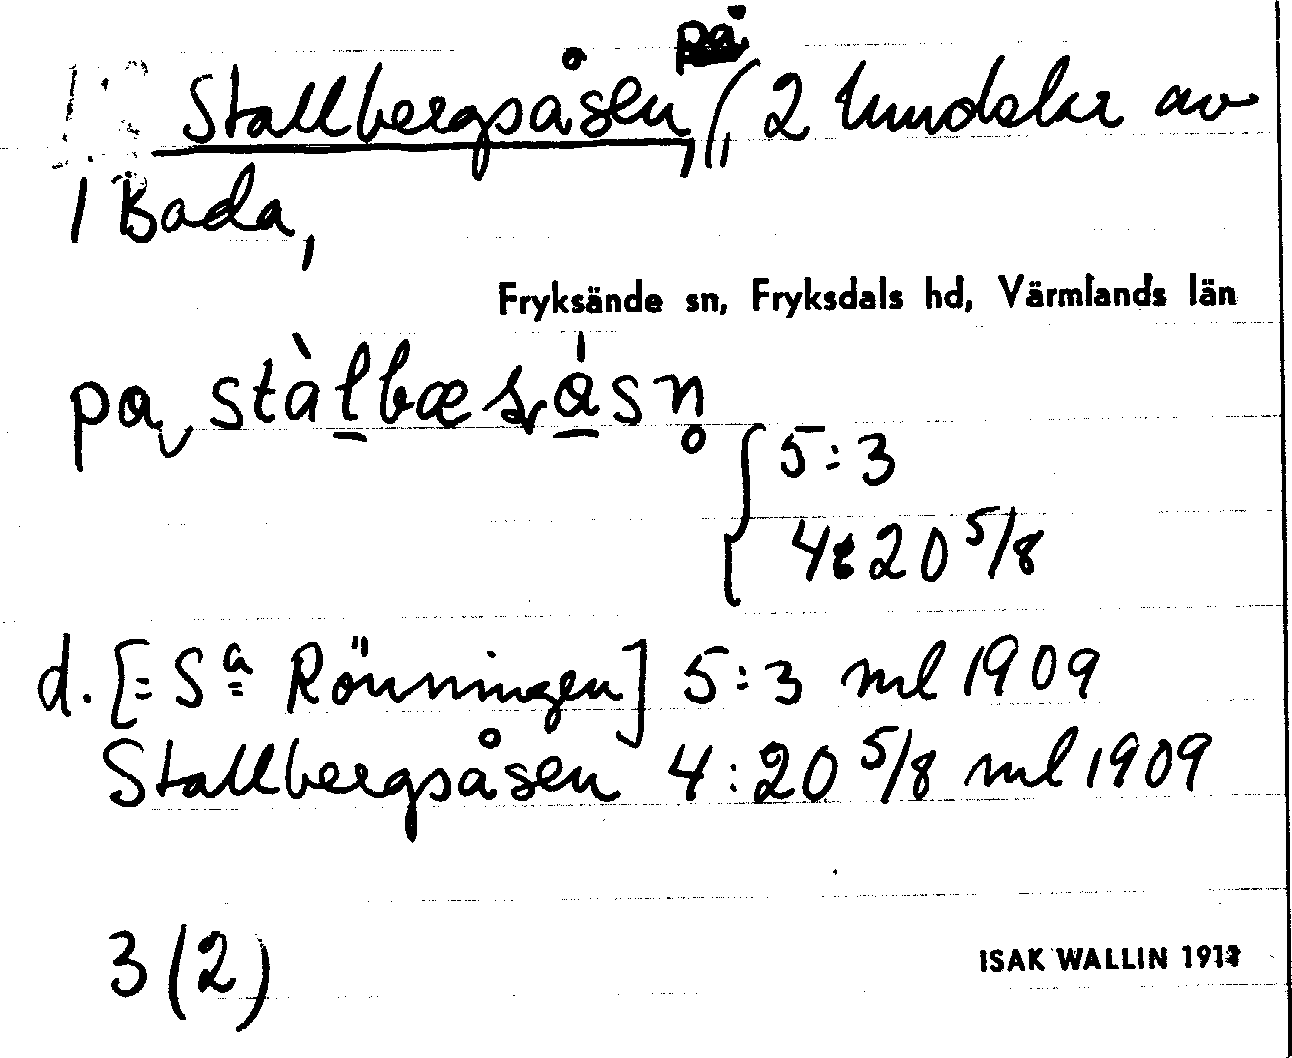 Stallbergsåsen, på, 2 hmdelar av
1 Bada,
Fryksände sn, Fryksdals hd, Värmlands län
pa stàlbæsråsn̥
5:3
4:20 5/8
d. [= Sa Rönningen] 5:3 ml 1909
Stallbergsåsen 4:20 5/8 ml 1909
3 (2)
ISAK WALLIN 1913